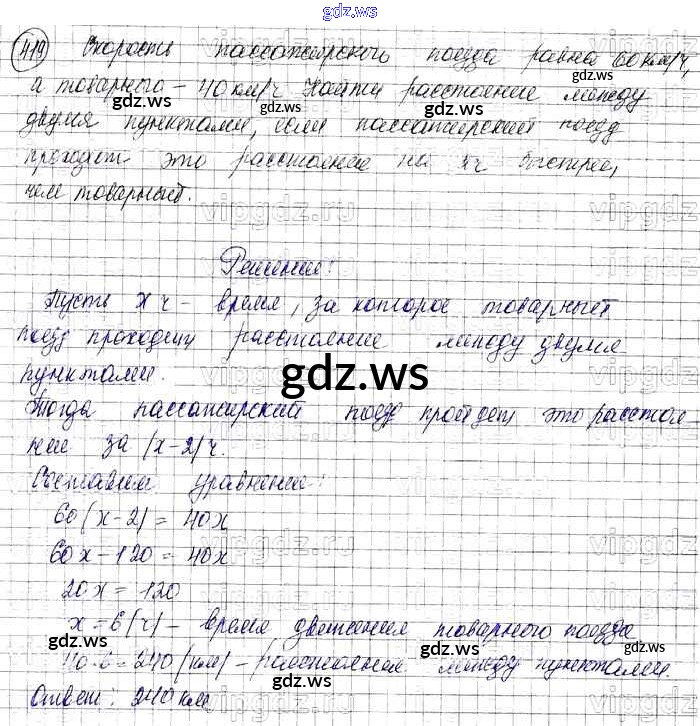 gdz.ws
419 Скорость пассажирского поезда равна 60 км/ч,
gdz.ws
а товарного – 40 км/ч Найти расстояние между
gdz.ws
двумя пунктами, если пассажирский поезд
gdz.ws
проходит это расстояние на 2ч быстрее,
чем товарный.
vipgdz.ru
Решение:
Пусть x ч – время, за которое товарный
поезд проходит расстояние между двумя
пунктами.
gdz.ws
Тогда пассажирский поезд пройдет это расстоя-
ние за (x-2)ч.
Составим уравнение:
gdz.ws
60(x-2) = 40x
60x-120 = 40x
20x = 120
gdz.ws
x=6(ч) – время движения товарного поезда
gdz.ws
40·6=240(км) – расстояния между пунктами.
Ответ: 240 км
gdz.ws